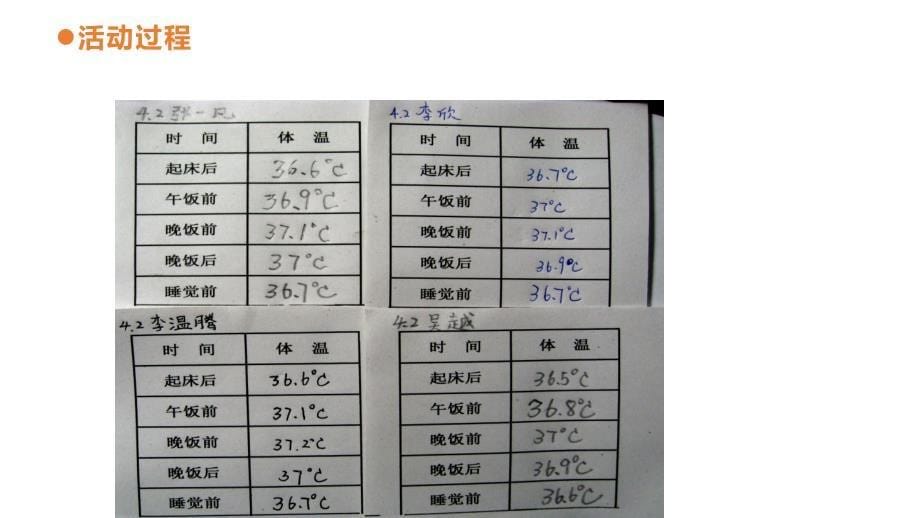 活动过程
4.2 张一凡
时 间 体 温
起床后 36.6℃
午饭前 36.9℃
晚饭前 37.1℃
晚饭后 37℃
睡觉前 36.7℃
4.2 李欣
时 间 体 温
起床后 36.7℃
午饭前 37℃
晚饭前 37.1℃
晚饭后 36.9℃
睡觉前 36.7℃
4.2 李温腾
时 间 体 温
起床后 36.6℃
午饭前 37.1℃
晚饭前 37.2℃
晚饭后 37℃
睡觉前 36.7℃
4.2 吴越
时 间 体 温
起床后 36.5℃
午饭前 36.8℃
晚饭前 37℃
晚饭后 36.9℃
睡觉前 36.6℃